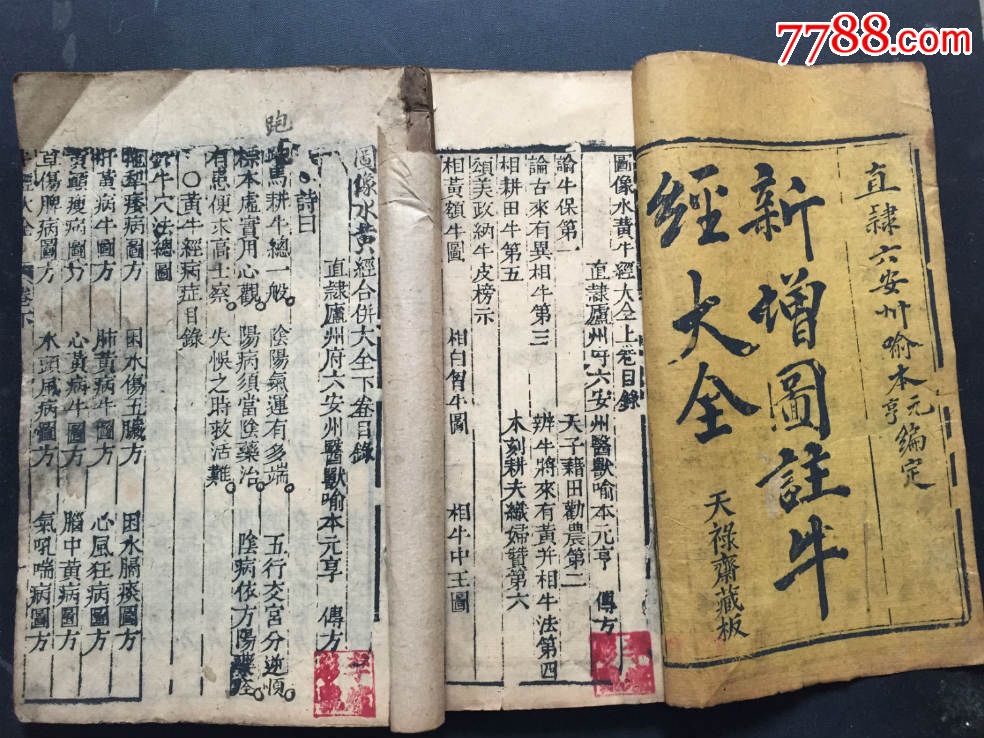 7788.com
直隸六安州喻本元亨編定
新增圖註牛
經大全
天祿齋藏板
圖像水黃牛經大全上卷目錄
直隸廬州府六安州醫獸喻本元亨 傳方
論牛保第一 天子藉田勸農第二
論古來有異相牛第三 辨牛將來有黃并相牛法第四
相耕田牛第五 木刻耕夫織婦贊第六
頌美政納牛皮榜示
相黃額牛圖 相白胷牛圖 相牛中王圖
圖像水黃經合併大全下卷目錄
直隸廬州府六安州醫獸喻本元亨 傳方
詩曰
跑
馬耕牛總一般 陰陽氣運有多端 五行交宮分逆順
標本虛實用心觀 陽病須當陰藥治 陰病依方陽
有患便求高士察 失悞之時救活難
○黃牛經病症目錄
牛穴法總圖
犂痿病圖方 困水傷五臟方 困水膈痰圖方
肝黃病牛圖方 肺黃病牛圖方 心風狂病圖方
頭瘦病圖方 心黃病牛圖方 腦中黃病圖方
草傷脾病圖方 水頭風病圖方 氣吼喘病圖方
經大全